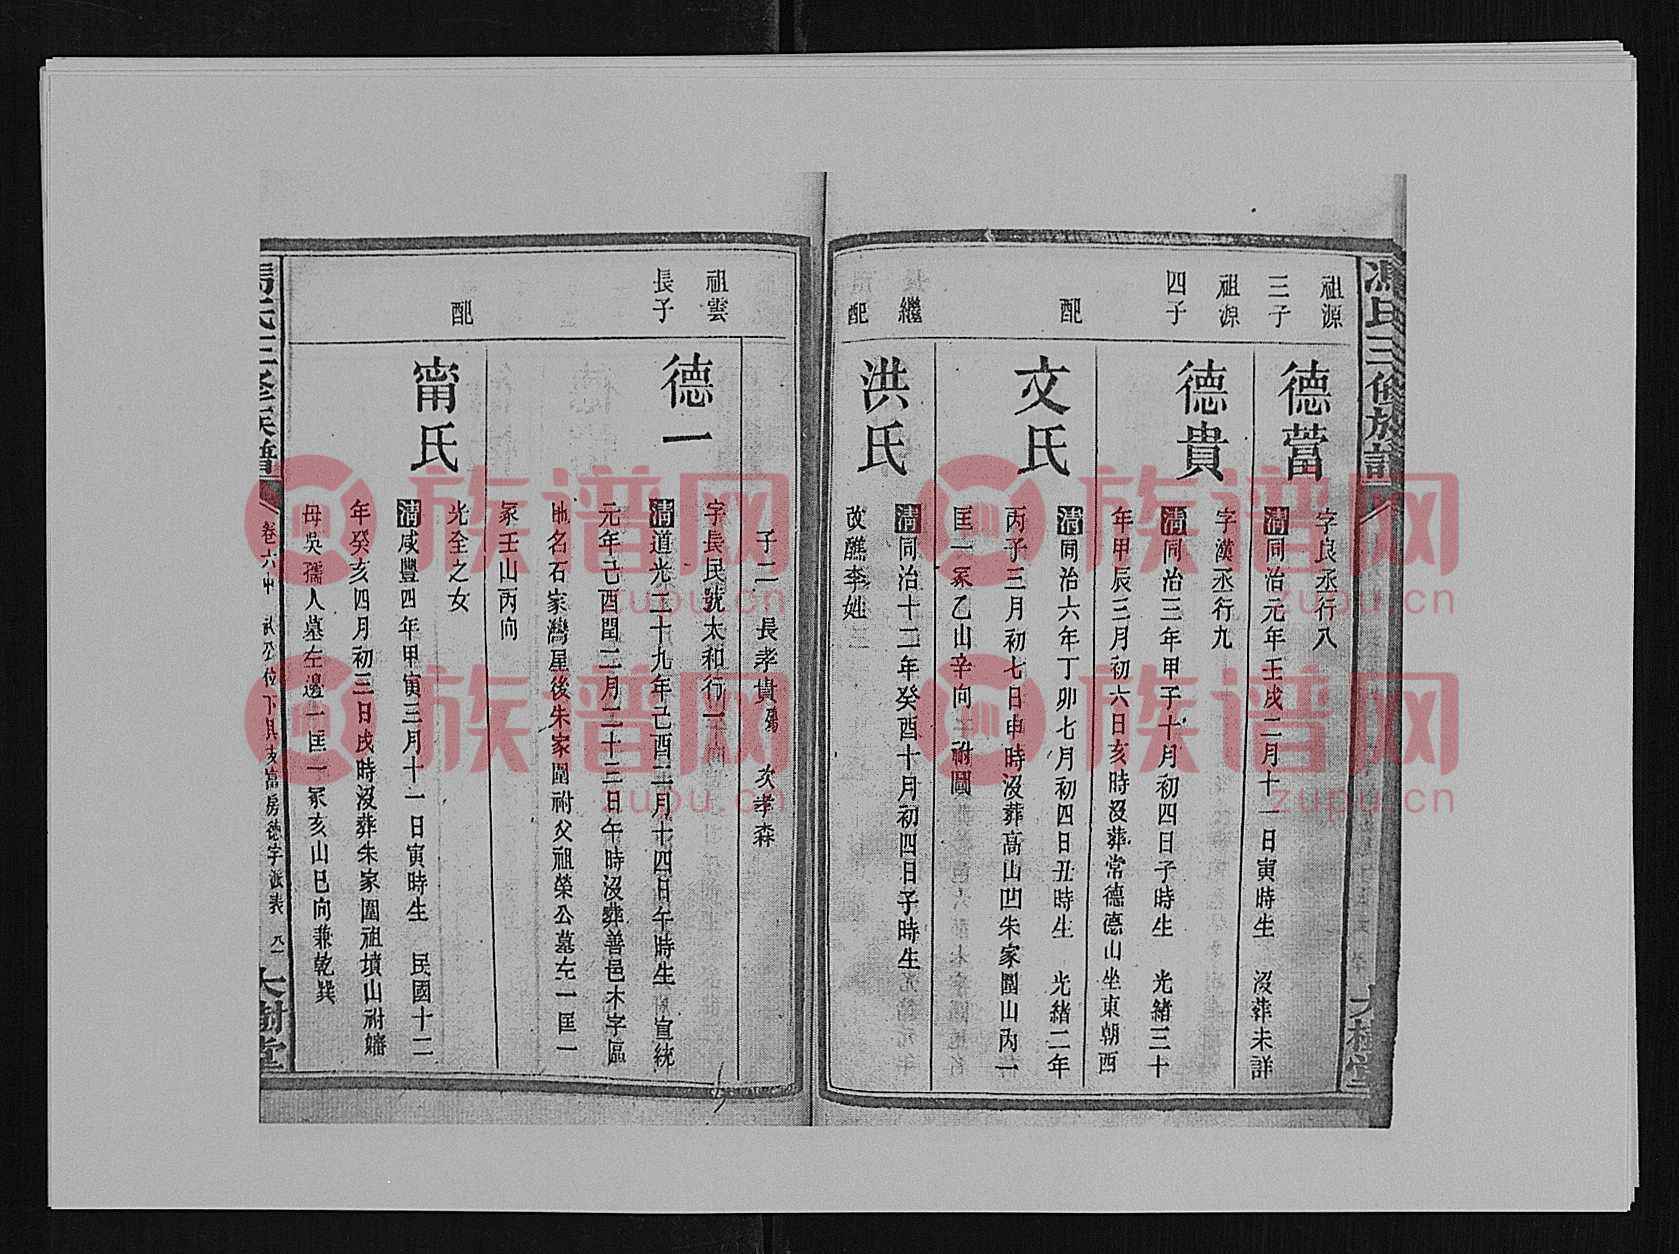 馮氏三修族譜
大樹堂
祖源
三子
德蓄
字良丞行八
清同治元年壬戌二月十一日寅時生 沒葬未詳
祖源
四子
德貴
字漢丞行九
清同治三年甲子十月初四日子時生 光緒三十
年甲辰三月初六日亥時沒葬常德德山坐東朝西
配
文氏
清同治六年丁卯七月初四日丑時生 光緒二年
丙子三月初七日申時沒葬高山凹朱家園山內一
匡一冢乙山辛向 祔圖
繼
配
洪氏
清同治十二年癸酉十月初四日子時生
改醮李姓
子二 長孝貴殤 次孝森
祖雲
長子
德一
字長民號太和行一
清道光二十九年己酉二月十四日午時生 宣統
元年己酉閏二月二十三日午時沒葬善邑木字區
地名石家灣屋後朱家園祔父祖榮公墓左一匡一
冢壬山丙向
配
甯氏
光全之女
清咸豐四年甲寅三月十一日寅時生 民國十二
年癸亥四月初三日戌時沒葬朱家園祖墳山祔
母吳孺人墓左邊一匡一冢亥山巳向兼乾巽
馮氏三修族譜
卷六 公位下 房德字派表
大樹堂
族谱网
zupu.cn
族谱网
zupu.cn
族谱网
zupu.cn
族谱网
zupu.cn